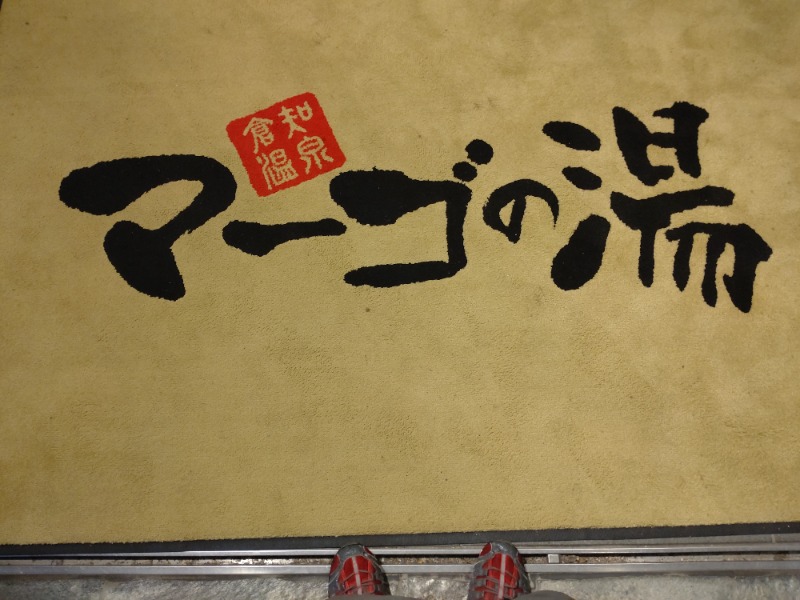 倉知
温泉
マーゴの湯